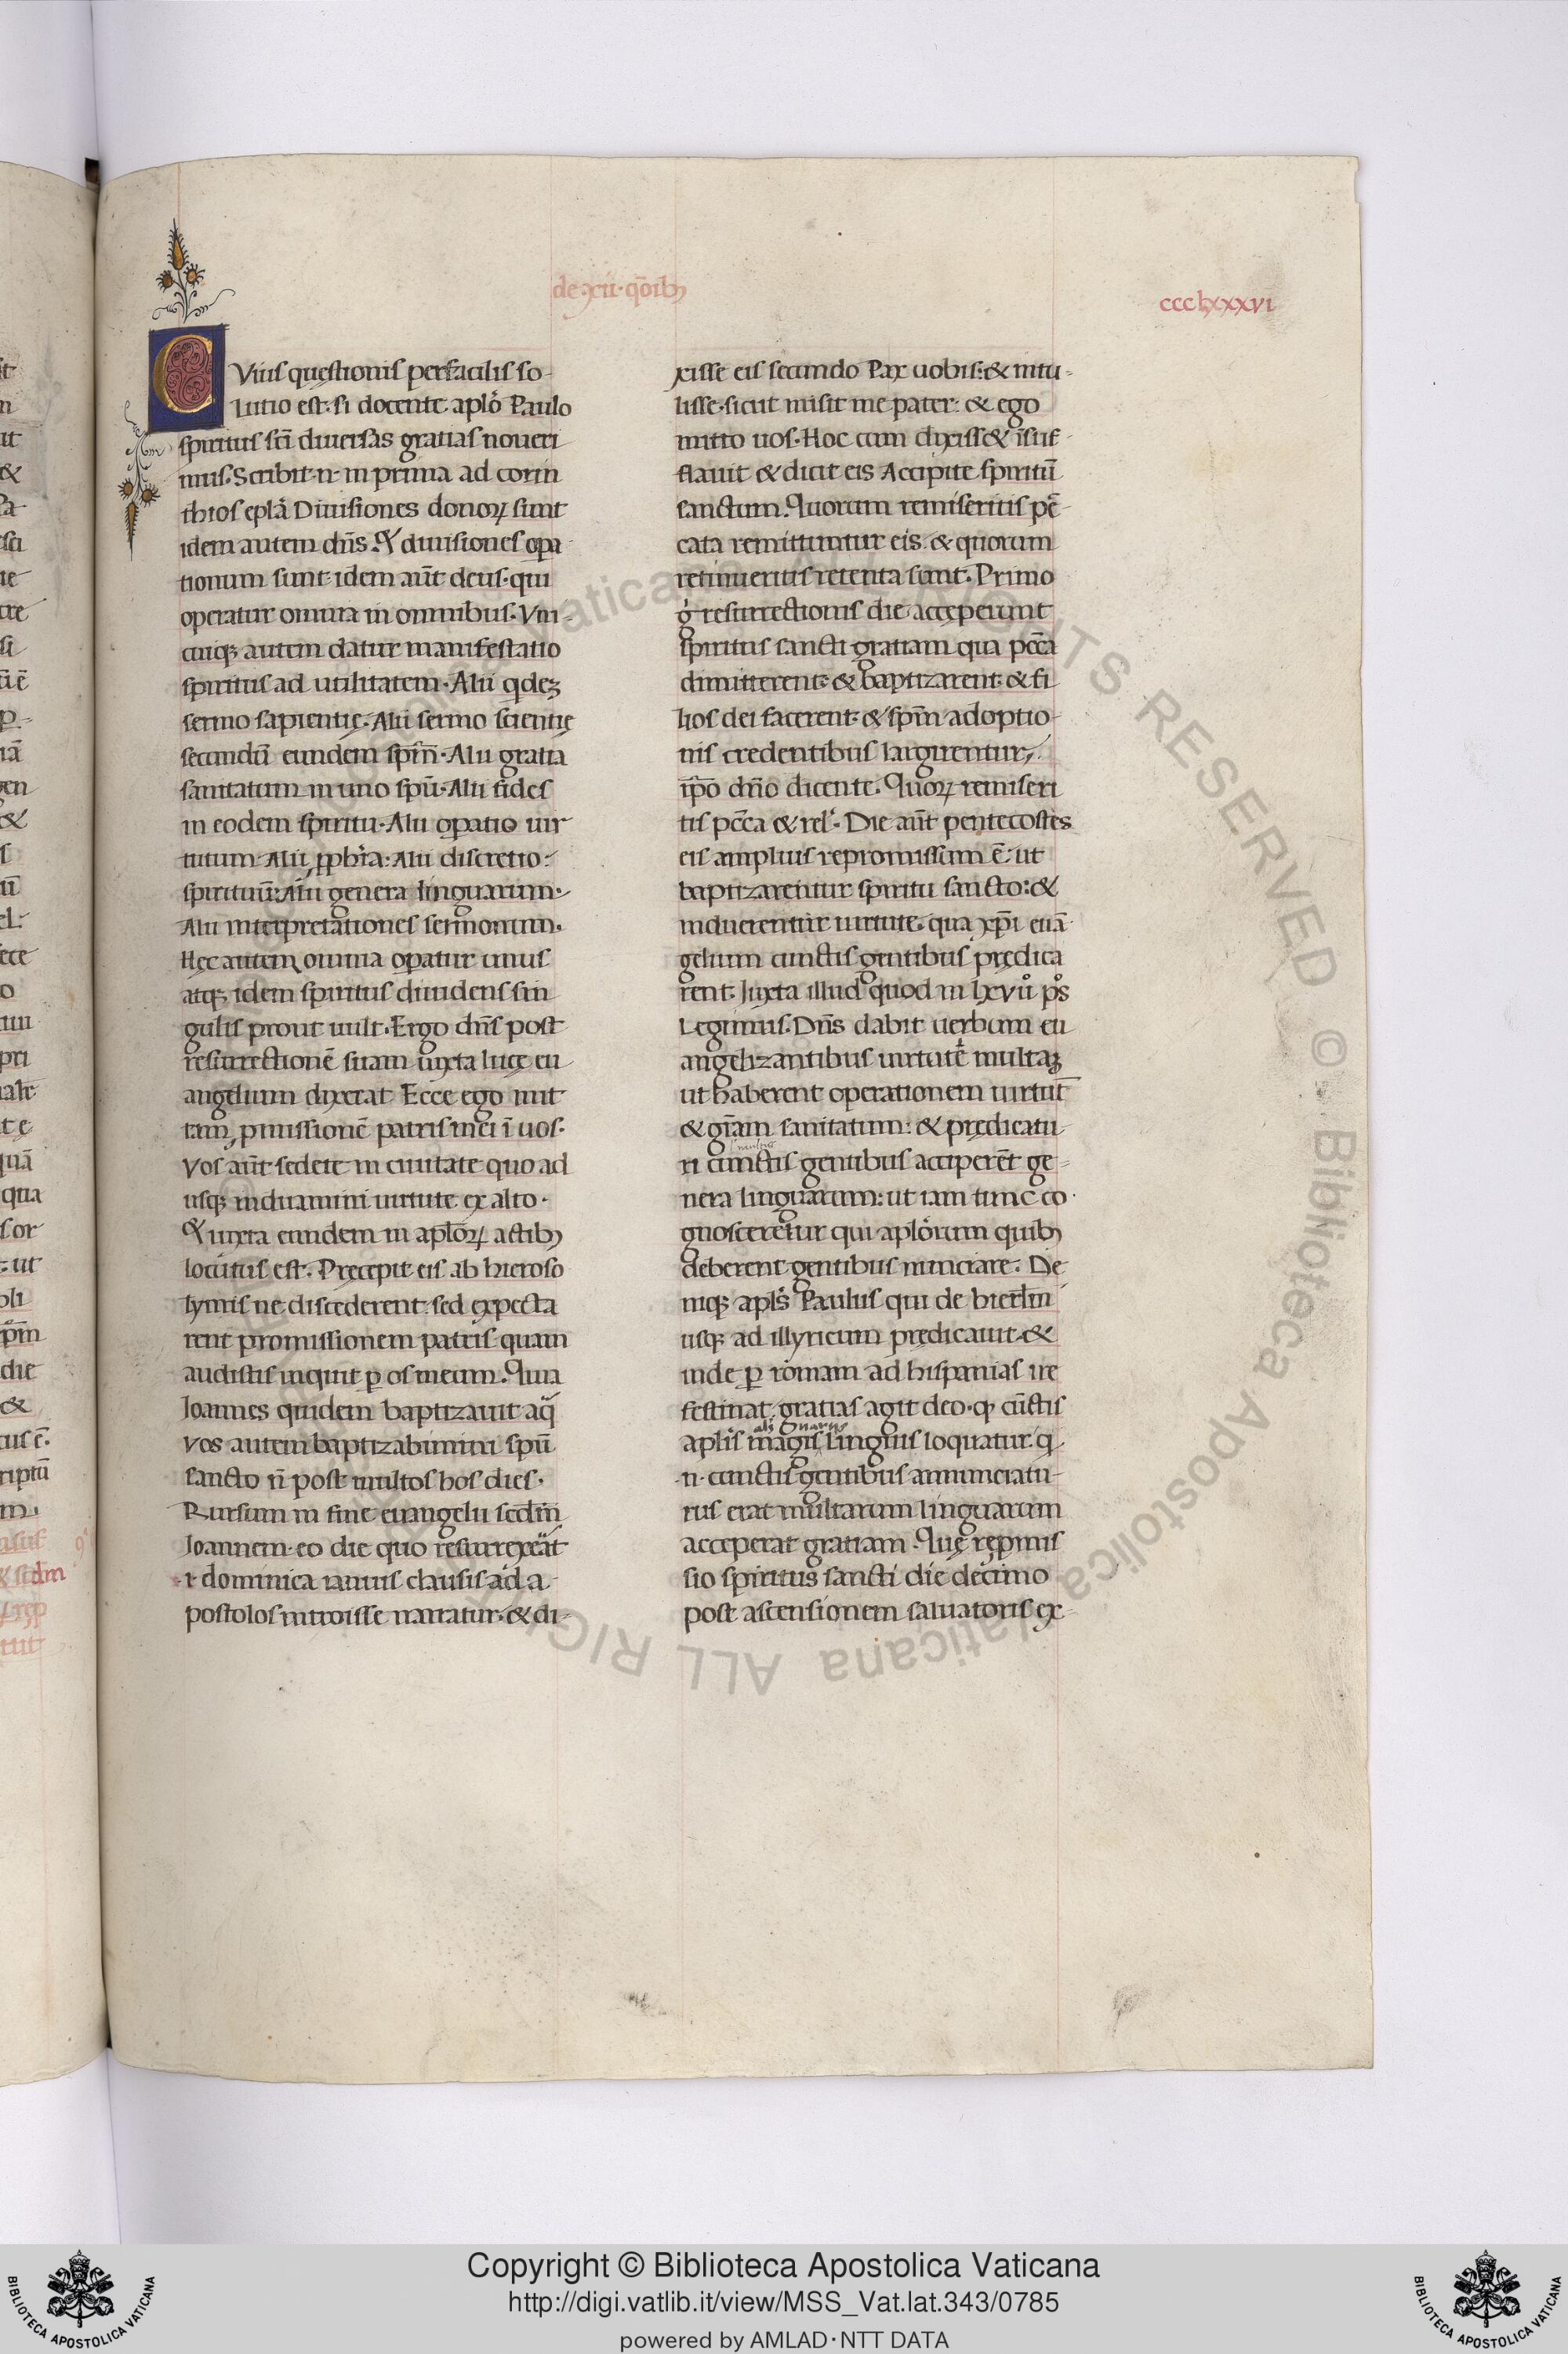 de xii. q̄oībꝫ
ccclxxxvi
CVius questionis perfacilis so-
lutio est. si docente apl̄o Paulo
spiritus sc̄i diuersas gratias noueri
mus. Scribit .n. in prima ad corin
thios epl̄a Diuisiones donoꝝ sunt
idem autem dn̄s. & diuisiones oꝑa
tionum sunt. idem aūt deus. qui
operatur omnia in omnibus. Vni-
cuiqꝫ autem datur manifestatio
spiritus ad utilitatem. Alii qdeꝫ
sermo sapientię. Alii sermo scientię
secundū eundem spm̄. Alii gratia
sanitatum in uno spū. Alii fides
in eodem spiritu. Alii oꝑatio uir
tutum. Alii ꝓph̄ia: Alii discretio.
spirituū: Alii genera linguarum.
Alii interpretationes sermonum.
Hęc autem omnia oꝑatur unus
atqꝫ idem spiritus diuidens sin
gulis prout uult. Ergo dn̄s post
resurrectionē suam iuxta lucę eu
angelium dixerat Ecce ego mit
tam ꝓmissionē patris mei ī uos.
Vos aūt sedete in ciuitate quo ad
usqꝫ induamini uirtute ex alto.
& iuxta eundem in aplōꝝ actibꝫ
locutus est. Pręcepit eis ab hieroso
lymis ne discederent. sed expecta
rent promissionem patris quam
audistis inquit ꝑ os meum. Quia
Ioannes quidem baptizauit aq̄
vos autem baptizabimini spū
sancto n̄ post multos hos dies.
Rursum in fine euangelii secdm̄
Ioannem. eo die quo resurrexerat
.i. dominica ianuis clausis ad a
postolos introisse narratur. & di-
xisse eis secundo Pax uobis: & intu-
lisse. sicut misit me pater: & ego
mitto uos. Hoc cum dixiss& īsuf-
flauit & dicit eis Accipite spiritū
sanctum. Quorum remiseritis pē-
cata remittuntur eis. & quorum
retinueritis retenta sunt. Primo
g̊ resurrectionis die acceperunt
spiritus sancti gratiam qua pcc̄a
dimitterent: & baptizarent. & fi
lios dei facerent: & spm̄ adoptio-
nis credentibus largirentur,
ip̄o dn̄o dicente. Quoꝝ remiseri
tis pcc̄a & rel'. Die aūt pentecostes
eis amplius repromissum ē: ut
baptizarentur spiritu sancto: &
induerentur uirtute. qua xp̄i euā
gelium cunctis gentibus prędica
rent. Iuxta illud quod in lxvii̊ ps̊
Legimus. Dn̄s dabit uerbum eu
angelizantibus uirtutē multaꝫ
ut haberent operationem uirtut̄
& gr̄am sanitatum: & prędicatu-
ri cunctis gentibus acciperēt ge-
nera linguarum: ut iam tunc co.
gnosceretur qui aplōrum quibꝫ
deberent gentibus nunciare. De
niqꝫ apls̄ Paulus qui de hierl̄m
usqꝫ ad illyricum prędicauit &
inde ꝑ romam ad hispanias ire
festinat. gratias agit deo. ꝙ cūctis
apl̄is magis linguis loquatur. q
.n. cunctis gentibus annunciatu-
rus erat multarum linguarum
acceperat gratiam. Quę reꝓmis
sio spiritus sancti die decimo
post ascensionem saluatoris ex-
Copyright © Biblioteca Apostolica Vaticana
http://digi.vatlib.it/view/MSS_Vat.lat.343/0785
powered by AMLAD·NTT DATA
BIBLIOTECA APOSTOLICA VATICANA
BIBLIOTECA APOSTOLICA VATICANA